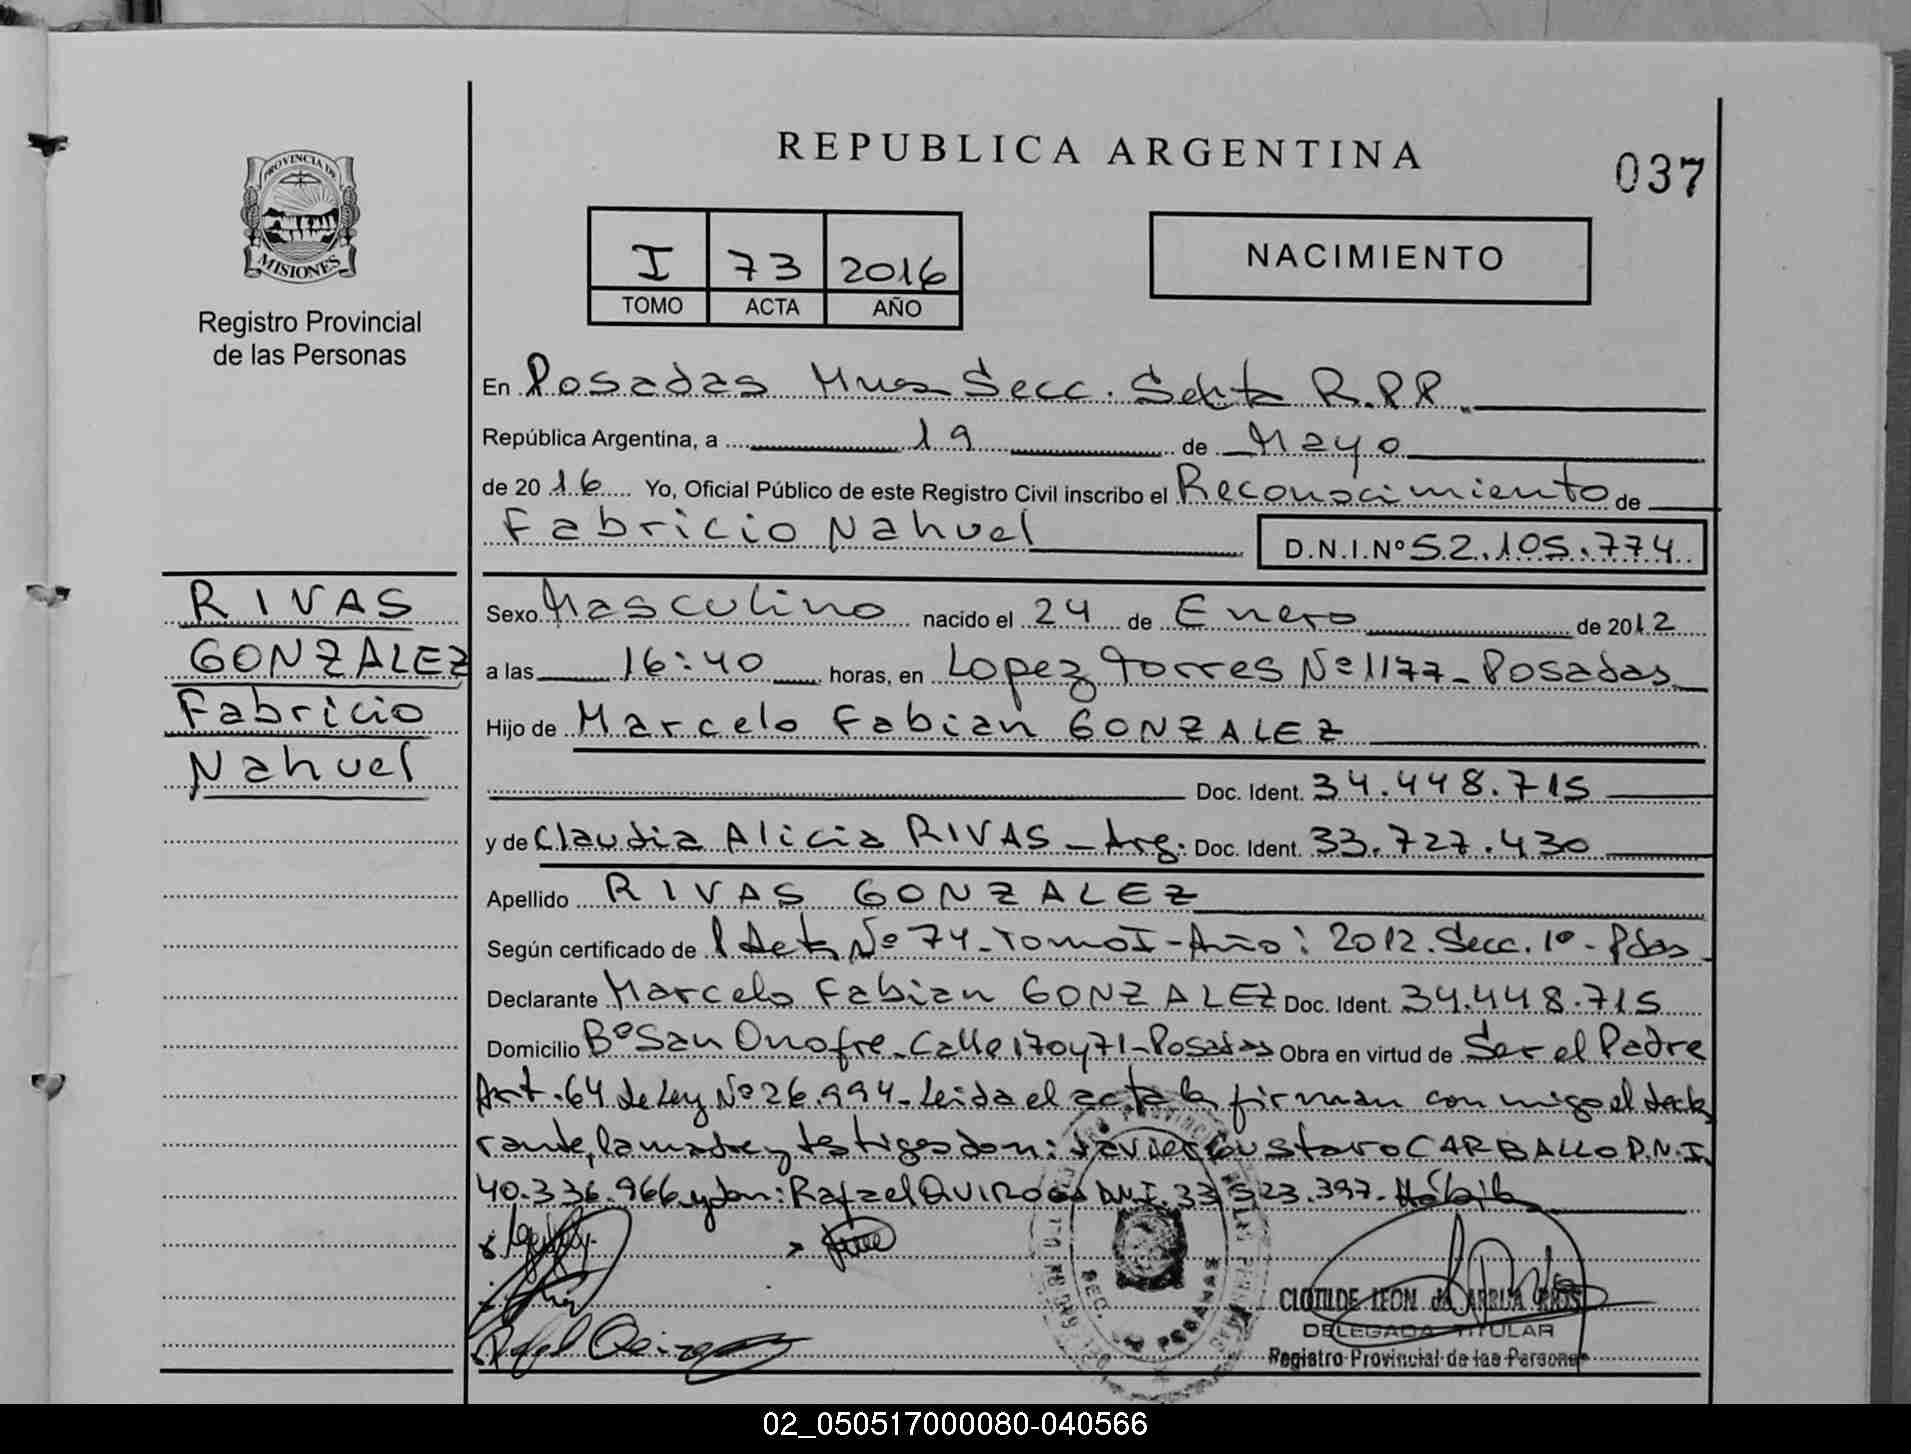 REPUBLICA ARGENTINA
037
PROVINCIA DE
MISIONES
Registro Provincial
de las Personas
I 73 2016
TOMO ACTA AÑO
NACIMIENTO
En Posadas Mnes Secc. Sexta R.P.P.
República Argentina, a 19 de Mayo
de 2016 Yo, Oficial Público de este Registro Civil inscribo el Reconocimiento de
Fabricio Nahuel D.N.I.Nº 52.105.774
RIVAS
GONZALEZ
Fabricio
Nahuel
Sexo Masculino nacido el 24 de Enero de 2012
a las 16:40 horas, en Lopez Torres Nº 1177 - Posadas
Hijo de Marcelo Fabian GONZALEZ
Doc. Ident. 34.448.715
y de Claudia Alicia RIVAS - Arg. Doc. Ident. 33.727.430
Apellido RIVAS GONZALEZ
Según certificado de Acta Nº 74 - Tomo I - Año: 2012. Secc. 1º - Pdas
Declarante Marcelo Fabian GONZALEZ Doc. Ident. 34.448.715
Domicilio Bº San Onofre - Calle 170 y 71 - Posadas Obra en virtud de Ser el Padre
Art. 64 de Ley Nº 26.994 - Leida el acta la firman con migo el decla
rante, la madre y testigos don: Javier Gustavo CARBALLO D.N.I.
40.336.966 y don: Rafael QUIROGA D.N.I. 33.523.397.
CLOTILDE LEON de ARRUA RIOS
DELEGADA TITULAR
Registro Provincial de las Personas
SEC. POSADAS
02_050517000080-040566